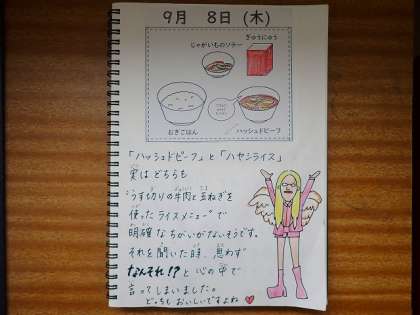 9月 8日 (木)
ぎゅうにゅう
じゃがいものソテー
むぎごはん
ハッシュドビーフ
「ハッシュドビーフ」と「ハヤシライス」
実はどちらも
うす切りの牛肉と玉ねぎを
使ったライスメニューで
明確なちがいがないそうです。
それを聞いた時、思わず
なんそれ!?と心の中で
言ってしまいました。
どっちもおいしいですよね